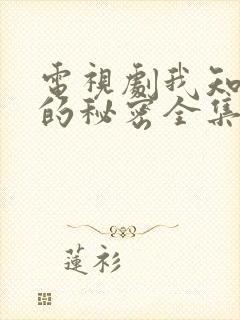 電視劇我知
的秘密全集
蓮衫